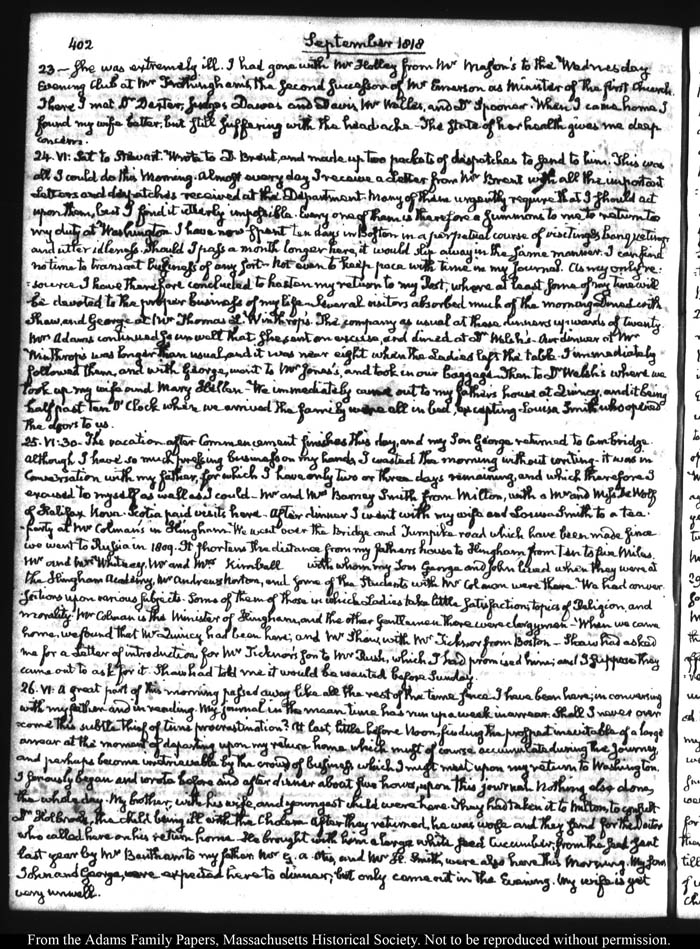 402
September 1818
23 — She was extremely ill. I had gone with Mr Holley from Mr Mason's to the Wednesday
Evening Club at Mr Frothingham's, the second Successor of Mr Emerson as Minister of the first Church.
There I met Dr Dexter, Judges Dawes and Davis, Mr Wallis, and Dr Spooner. When I came home I
found my wife better, but still suffering with the headache — The state of her health gives me deep
concern.
24. VI: Sat to Stewart. Wrote to D. Brent, and made up two packets of dispatches to send to him. This was
all I could do this Morning. Almost every day I receive a Letter from Mr Brent with all the important
Letters and despatches received at the Department. Many of these urgently require that I should act
upon them, but I find it utterly impossible. Every one of them is therefore a summons to me to return to
my duty at Washington. I have now spent ten days in Boston in a perpetual course of visiting, banqueting
and utter idleness. Should I pass a month longer here, it would slip away in the same manner. I can find
no time to transact business of any sort — Not even to keep pace with time in my Journal. As my only re-
source I have therefore concluded to hasten my return to my Post, where at least some of my time will
be devoted to the proper business of my life — Several visitors absorbed much of the morning. Dined with
Shaw, and George at Mr Thomas L. Winthrop's. The company as usual at these dinners upwards of twenty.
Mrs Adams continued so unwell that she sent an excuse, and dined at Dr Welsh's. Our dinner at Mr
Winthrop's was longer than usual, and it was near eight when the Ladies left the table. I immediately
followed them, and with George, went to Mr Jones's, and took in our baggage. Then to Dr Welsh's where we
took up my wife and Mary Hellen — We immediately came out to my father's house at Quincy, and it being
half past Ten O'Clock when we arrived the family were all in bed, excepting Louisa Smith who opened
the doors to us.
25. VI:30. The vacation after Commencement finishes this day, and my Son George returned to Cambridge.
Although I have so much pressing business on my hands, I wasted the morning without writing — it was in
Conversation with my father, for which I have only two or three days remaining, and which therefore I
excused to myself as well as I could. Mr and Mrs Barney Smith from Milton, with a Mr and Miss De Wolf
of Halifax Nova-Scotia paid visits here. After dinner I went with my wife and Louisa Smith to a tea-
party at Mr Colman's in Hingham. We went over the Bridge and Turnpike road which have been made since
we went to Russia in 1809. It shortens the distance from my father's house to Hingham from ten to five Miles.
Mr and Mrs Whitney, Mr and Mrs Kimball with whom my Sons George and John lived when they were at
the Hingham Academy, Mr Andrews Norton, and some of the Students with Mr Colman were there. We had conver-
sations upon various subjects. Some of them of those in which Ladies take little satisfaction; topics of Religion, and
morality. Mr Colman is the Minister of Hingham, and the other Gentlemen there were clergymen — When we came
home, we found that Mr Quincy had been here; and Mr Shaw, with Mr Ticknor from Boston — Shaw had asked
me for a Letter of introduction for Mr Ticknor's son to Mr Rush, which I had promised him; and I suppose they
came out to ask for it. Shaw had told me it would be wanted before Sunday.
26. VI: A great part of this morning passed away like all the rest of the time since I have been here; in conversing
with my father and in reading. My Journal in the mean time has run up a week in arrear. Shall I never over-
come this subtle thief of time procrastination? At last, little before Noon, finding the prospect inevitable of a large
arrear at the moment of departing upon my return home which must of course accumulate during the Journey,
and perhaps become unretrievable by the crowd of business which I must meet upon my return to Washington,
I seriously began and wrote before and after dinner about five hours, upon this journal. Nothing else done,
the whole day. My brother, with his wife, and youngest child were here. They had taken it to Milton to consult
Dr Holbrook, the child being ill with the Cholera. After they returned, he was worse and they send for the Doctor
who called here on his return home. He brought with him a large white seed Cucumber, from the seed sent
last year by Mr Bentham to my father. Mr G. A. Otis, and Mr St. Smith, were also here this Morning. My Sons
John and George, were expected here to dinner, but only came out in the Evening. My wife is yet
very unwell.
From the Adams Family Papers, Massachusetts Historical Society. Not to be reproduced without permission.